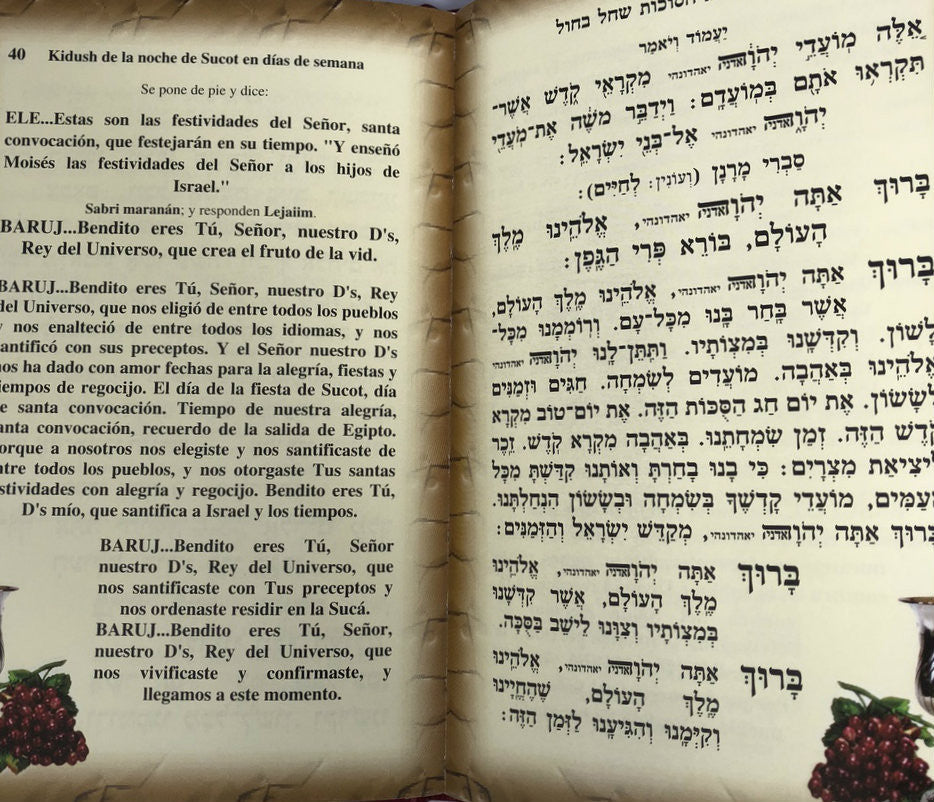 40 Kidush de la noche de Sucot en días de semana
Se pone de pie y dice:
ELE...Estas son las festividades del Señor, santa
convocación, que festejarán en su tiempo. "Y enseñó
Moisés las festividades del Señor a los hijos de
Israel."
Sabri maranán; y responden Lejaiim.
BARUJ...Bendito eres Tú, Señor, nuestro D's,
Rey del Universo, que crea el fruto de la vid.
BARUJ...Bendito eres Tú, Señor, nuestro D's, Rey
del Universo, que nos eligió de entre todos los pueblos
y nos enalteció de entre todos los idiomas, y nos
santificó con sus preceptos. Y el Señor nuestro D's
nos ha dado con amor fechas para la alegría, fiestas y
tiempos de regocijo. El día de la fiesta de Sucot, día
de santa convocación. Tiempo de nuestra alegría,
santa convocación, recuerdo de la salida de Egipto.
Porque a nosotros nos elegiste y nos santificaste de
entre todos los pueblos, y nos otorgaste Tus santas
festividades con alegría y regocijo. Bendito eres Tú,
D's mío, que santifica a Israel y los tiempos.
BARUJ...Bendito eres Tú, Señor
nuestro D's, Rey del Universo, que
nos santificaste con Tus preceptos y
nos ordenaste residir en la Sucá.
BARUJ...Bendito eres Tú, Señor,
nuestro D's, Rey del Universo, que
nos vivificaste y confirmaste, y
llegamos a este momento.
הסוכות שחל בחול
יַעֲמוֹד וְיֹאמַר
אֵלֶּה מוֹעֲדֵי יְהֹוָה יאהדונהי מִקְרָאֵי קֹדֶשׁ אֲשֶׁר־
תִּקְרְאוּ אֹתָם בְּמוֹעֲדָם: וַיְדַבֵּר מֹשֶׁה אֶת־מֹעֲדֵי
יְהֹוָה יאהדונהי אֶל־בְּנֵי יִשְׂרָאֵל:
סַבְרִי מָרָנָן (וְעוֹנִין: לְחַיִּים):
בָּרוּךְ אַתָּה יְהֹוָה יאהדונהי, אֱלֹהֵינוּ מֶלֶךְ
הָעוֹלָם, בּוֹרֵא פְּרִי הַגֶּפֶן:
בָּרוּךְ אַתָּה יְהֹוָה יאהדונהי, אֱלֹהֵינוּ מֶלֶךְ הָעוֹלָם,
אֲשֶׁר בָּחַר בָּנוּ מִכָּל־עָם. וְרוֹמְמָנוּ מִכָּל־
לָשׁוֹן. וְקִדְּשָׁנוּ בְּמִצְוֹתָיו. וַתִּתֶּן־לָנוּ יְהֹוָה יאהדונהי
אֱלֹהֵינוּ בְּאַהֲבָה. מוֹעֲדִים לְשִׂמְחָה. חַגִּים וּזְמַנִּים
לְשָׂשׂוֹן. אֶת יוֹם חַג הַסֻּכּוֹת הַזֶּה. אֶת יוֹם־טוֹב מִקְרָא
קֹדֶשׁ הַזֶּה. זְמַן שִׂמְחָתֵנוּ. בְּאַהֲבָה מִקְרָא קֹדֶשׁ. זֵכֶר
לִיצִיאַת מִצְרָיִם: כִּי בָנוּ בָחַרְתָּ וְאוֹתָנוּ קִדַּשְׁתָּ מִכָּל
הָעַמִּים, מוֹעֲדֵי קָדְשֶׁךָ בְּשִׂמְחָה וּבְשָׂשׂוֹן הִנְחַלְתָּנוּ.
בָּרוּךְ אַתָּה יְהֹוָה יאהדונהי, מְקַדֵּשׁ יִשְׂרָאֵל וְהַזְּמַנִּים:
בָּרוּךְ אַתָּה יְהֹוָה יאהדונהי, אֱלֹהֵינוּ
מֶלֶךְ הָעוֹלָם, אֲשֶׁר קִדְּשָׁנוּ
בְּמִצְוֹתָיו וְצִוָּנוּ לֵישֵׁב בַּסֻּכָּה.
בָּרוּךְ אַתָּה יְהֹוָה יאהדונהי, אֱלֹהֵינוּ
מֶלֶךְ הָעוֹלָם, שֶׁהֶחֱיָינוּ
וְקִיְּמָנוּ וְהִגִּיעָנוּ לַזְּמַן הַזֶּה: